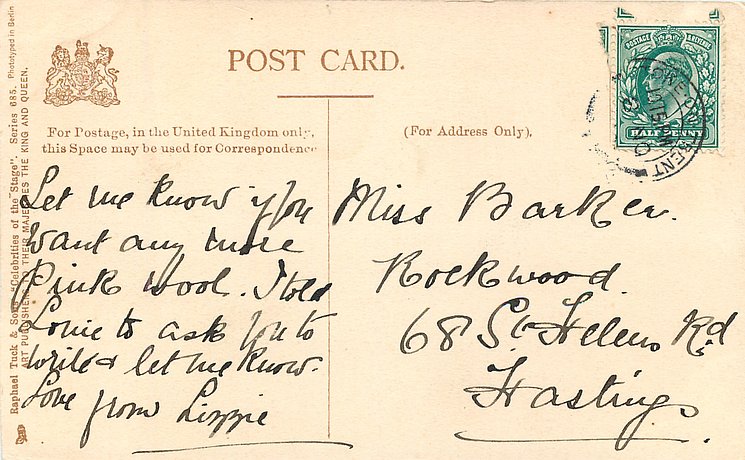 POST CARD.
For Postage, in the United Kingdom only,
this Space may be used for Correspondence
(For Address Only).
POSTAGE & REVENUE
HALFPENNY
Let me know if you
want any more
Pink wool. I told
Louie to ask you to
write & let me know.
Love from Lizzie
Miss Barker.
Rockwood.
68 St Helens Rd
Hastings.
Raphael Tuck & Sons "Celebrities of the Stage". Series 685. Phototyped in Berlin
ART PUBLISHERS TO THEIR MAJESTIES THE KING AND QUEEN.